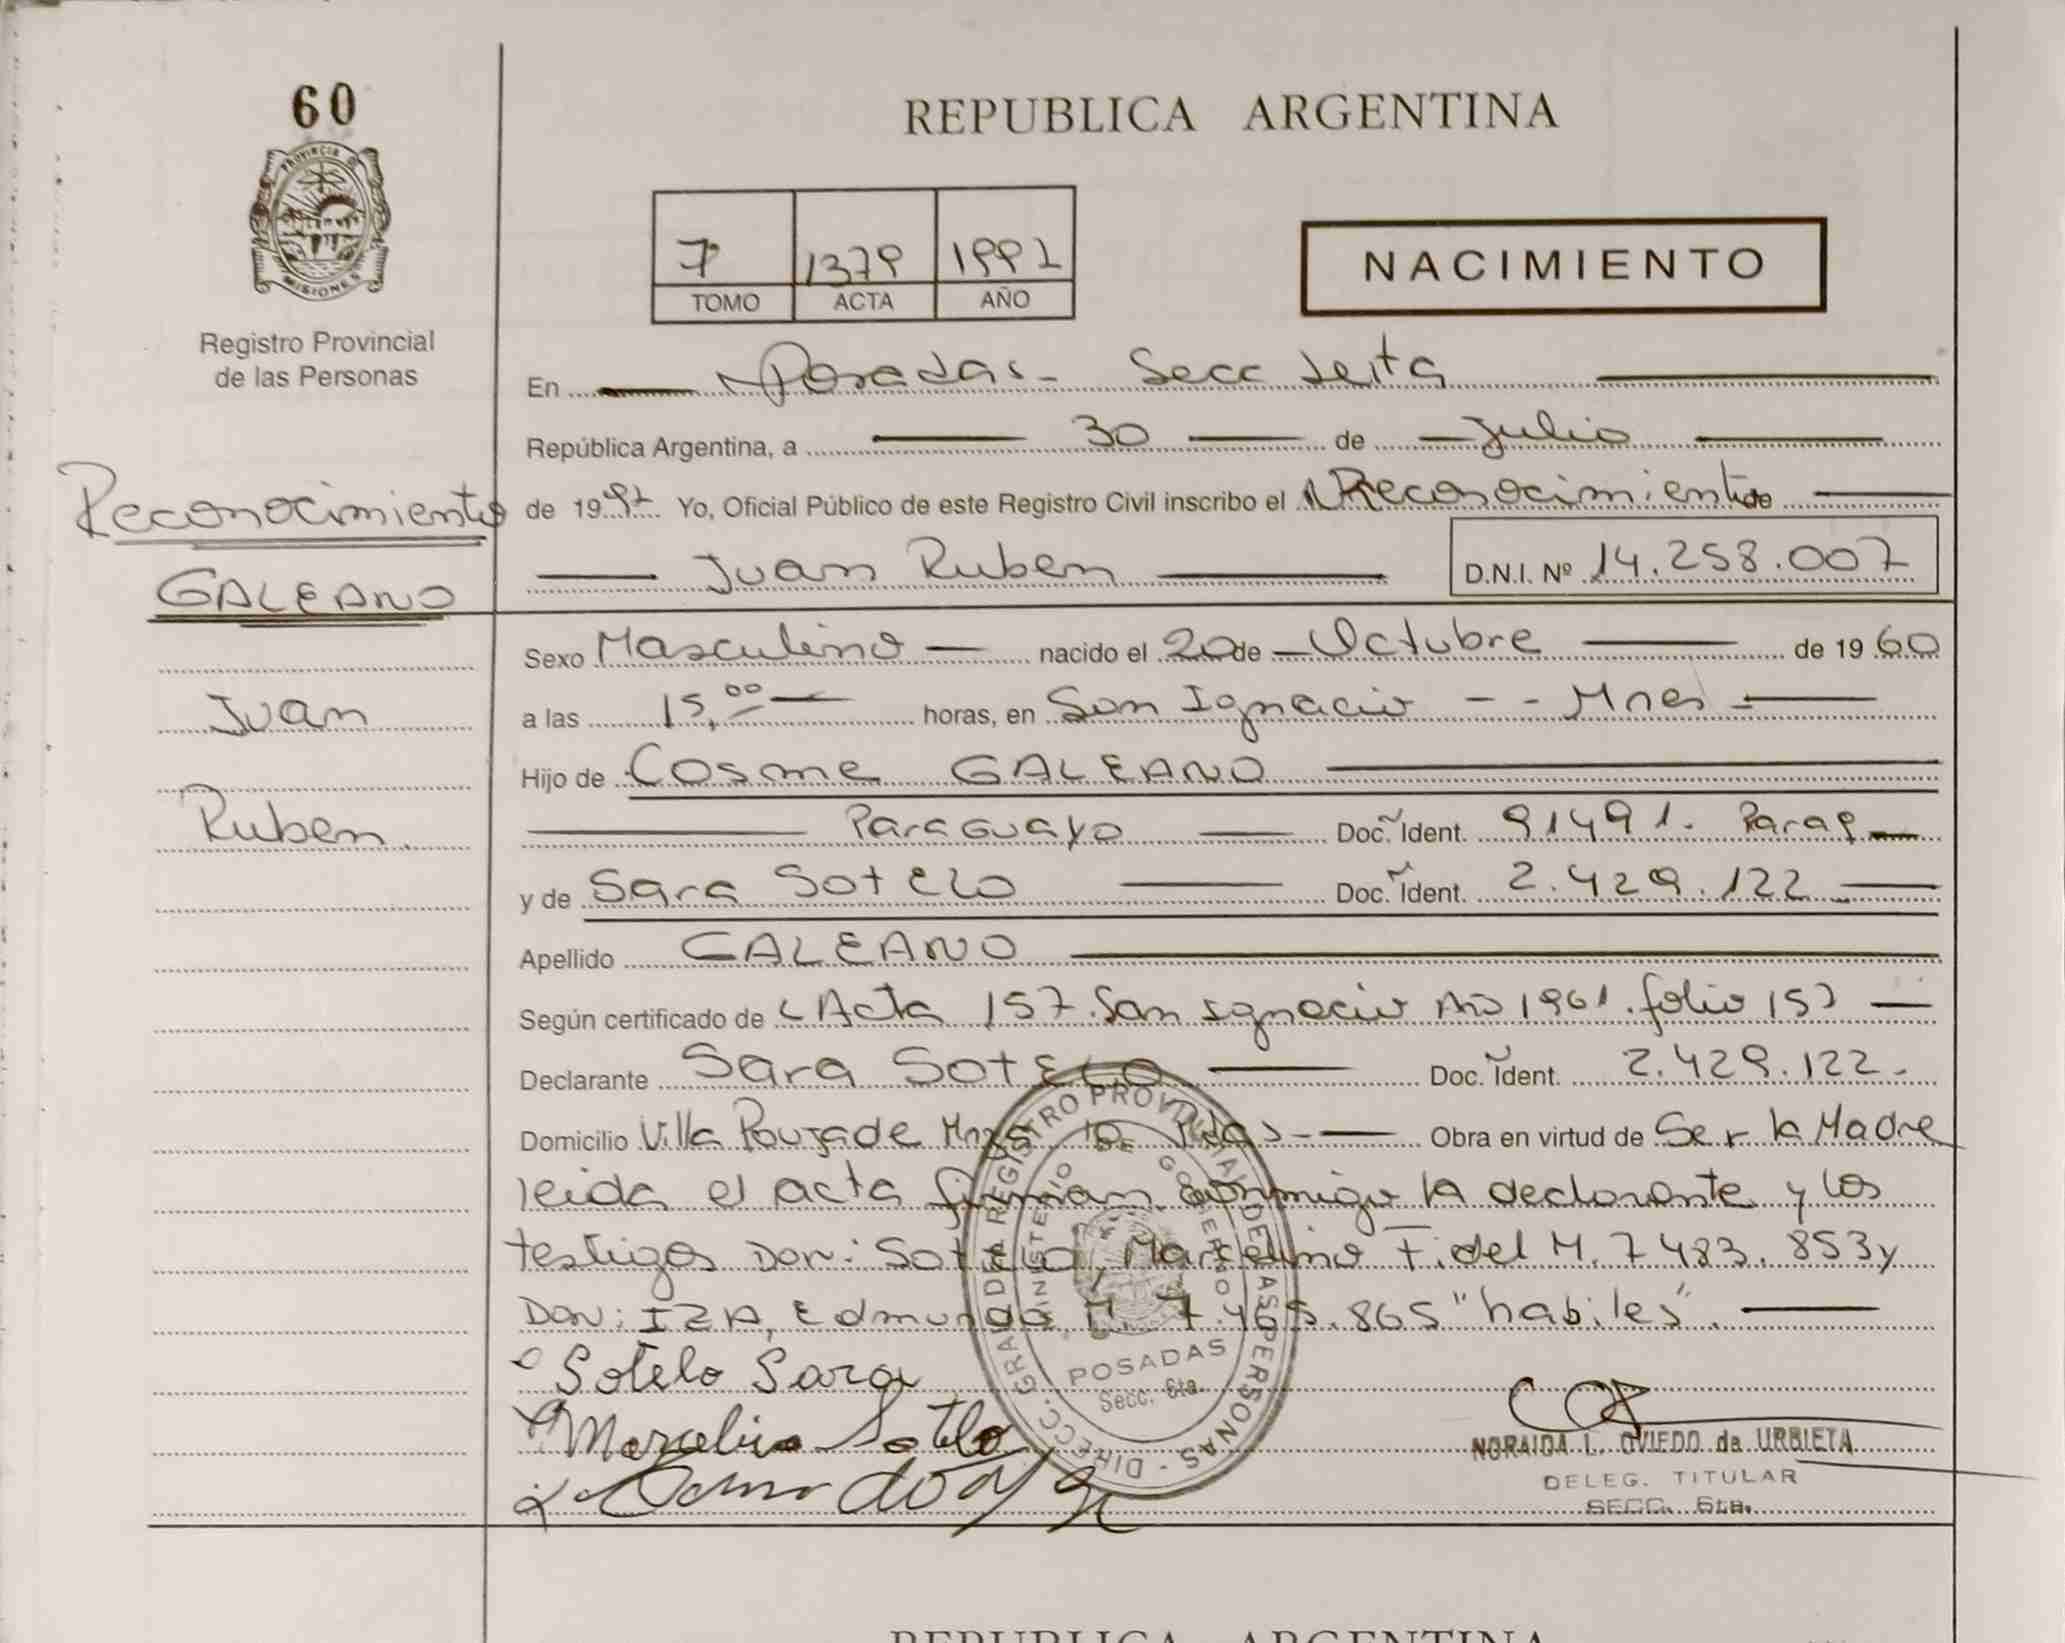 60
PROVINCIA DE
MISIONES
Registro Provincial
de las Personas
Reconocimiento
GALEANO
Juan
Ruben.
REPUBLICA ARGENTINA
7º 1379 1992
TOMO ACTA AÑO
NACIMIENTO
En Posadas - Secc Sexta
República Argentina, a 30 de Julio
de 1992 Yo, Oficial Público de este Registro Civil inscribo el Reconocimiento de
Juan Ruben D.N.I. Nº 14.258.007
Sexo Masculino nacido el 20 de Octubre de 1960
a las 15,00 horas, en San Ignacio - - Mnes
Hijo de Cosme GALEANO
Paraguayo Doc. Ident. 91491. Parag
y de Sara Sotelo Doc. Ident. 2.429.122
Apellido GALEANO
Según certificado de Acta 157. San Ignacio Año 1961. folio 157
Declarante Sara Sotelo Doc. Ident. 2.429.122.
Domicilio Villa Poujade Obra en virtud de Ser la Madre
leida el acta firman conmigo la declarante y los
testigos Don: Sotelo, Marcelino Fidel M. 7483.853 y
Don: IZA, Edmundo M. 7.465.865 "habiles".
Sotelo Sara
Marcelino Sotelo
DIRECC. GRAL. DEL REGISTRO PROVINCIAL DE LAS PERSONAS -
MINISTERIO DE GOBIERNO
POSADAS
Secc. 6ta.
NORAIDA L. OVIEDO de URBIETA
DELEG. TITULAR
SECC. 6ta.
REPUBLICA ARGENTINA